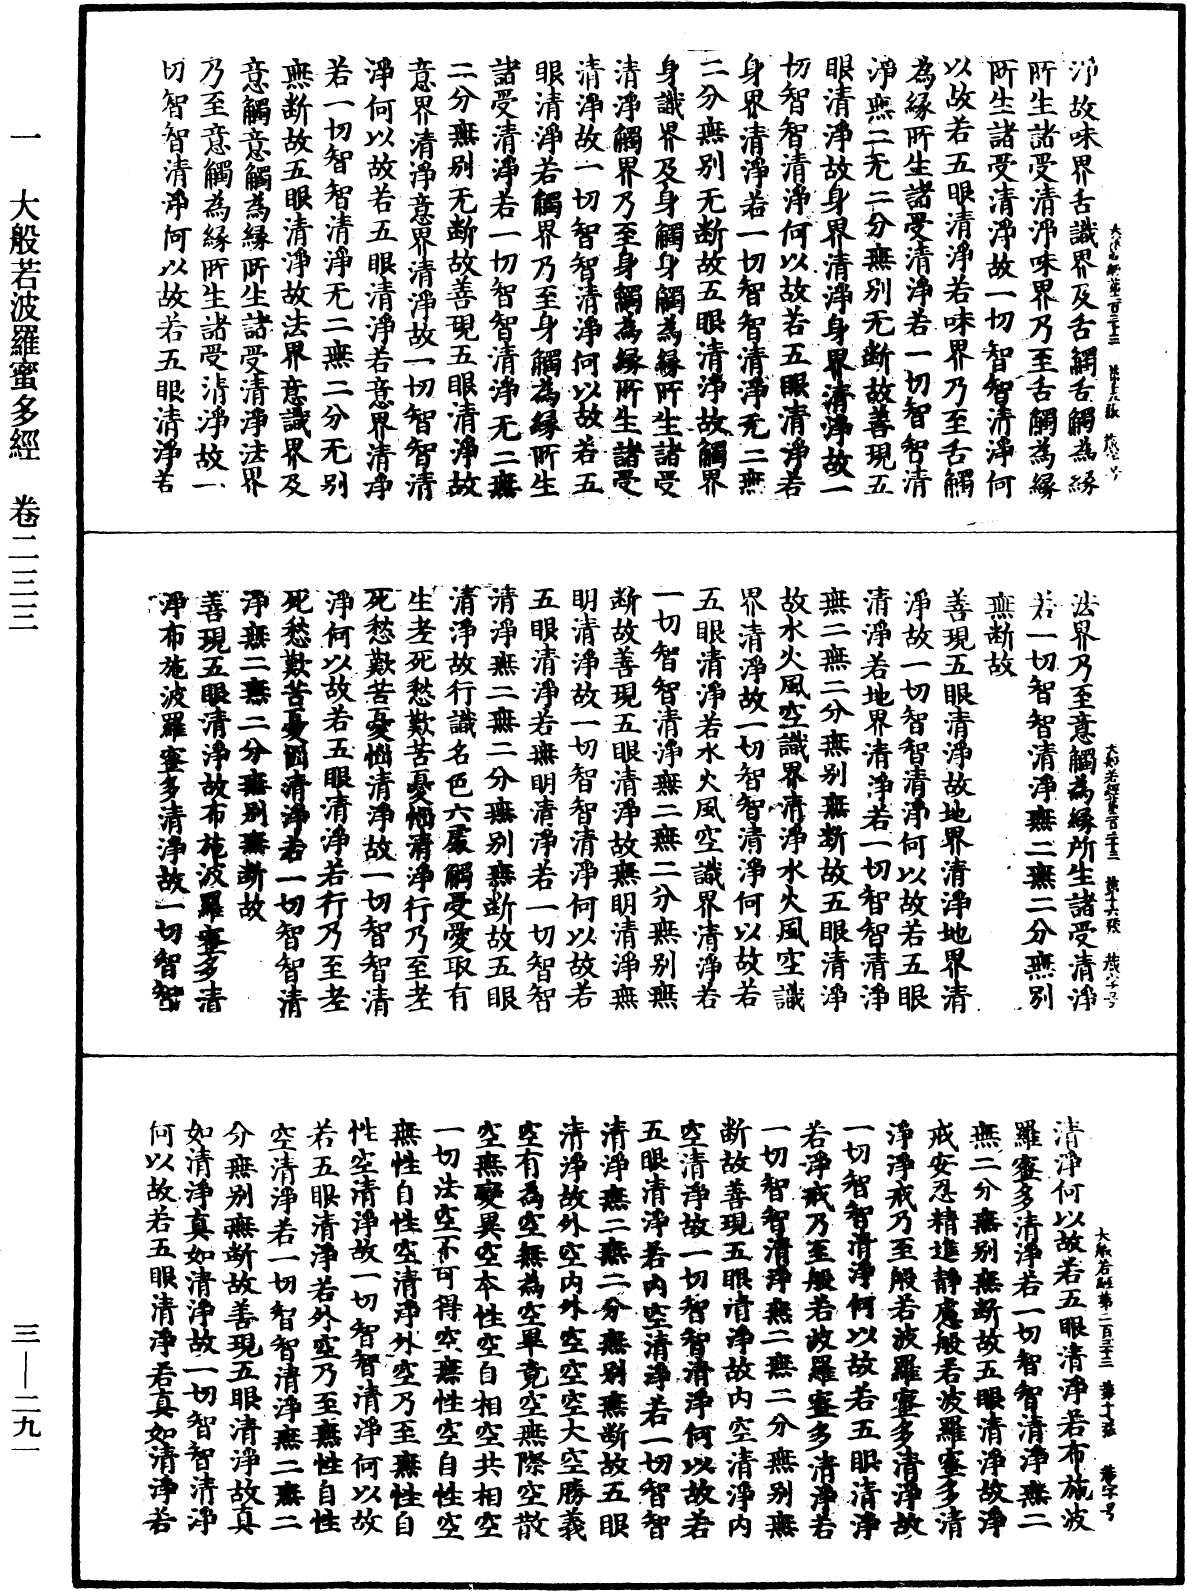 淨故味界舌識界及舌觸舌觸為緣
所生諸受清淨味界乃至舌觸為緣
所生諸受清淨故一切智智清淨何
以故若五眼清淨若味界乃至舌觸
為緣所生諸受清淨若一切智智清
淨無二无二分無別无斷故善現五
眼清淨故身界清淨身界清淨故一
切智智清淨何以故若五眼清淨若
身界清淨若一切智智清淨无二無
二分無別无斷故五眼清淨故觸界
身識界及身觸身觸為緣所生諸受
清淨觸界乃至身觸為緣所生諸受
清淨故一切智智清淨何以故若五
眼清淨若觸界乃至身觸為緣所生
諸受清淨若一切智智清淨无二無
二分無別无斷故善現五眼清淨故
意界清淨意界清淨故一切智智清
淨何以故若五眼清淨若意界清淨
若一切智智清淨无二無二分无別
無斷故五眼清淨故法界意識界及
意觸意觸為緣所生諸受清淨法界
乃至意觸為緣所生諸受清淨故一
切智智清淨何以故若五眼清淨若
法界乃至意觸為緣所生諸受清淨
若一切智智清淨無二無二分無別
無斷故
善現五眼清淨故地界清淨地界清
淨故一切智智清淨何以故若五眼
清淨若地界清淨若一切智智清淨
無二無二分無別無斷故五眼清淨
故水火風空識界清淨水火風空識
界清淨故一切智智清淨何以故若
五眼清淨若水火風空識界清淨若
一切智智清淨無二無二分無別無
斷故善現五眼清淨故無明清淨無
明清淨故一切智智清淨何以故若
五眼清淨若無明清淨若一切智智
清淨無二無二分無別無斷故五眼
清淨故行識名色六處觸受愛取有
生老死愁歎苦憂惱清淨行乃至老
死愁歎苦憂惱清淨故一切智智清
淨何以故若五眼清淨若行乃至老
死愁歎苦憂惱清淨若一切智智清
淨無二無二分無別無斷故
善現五眼清淨故布施波羅蜜多清
淨布施波羅蜜多清淨故一切智智
清淨何以故若五眼清淨若布施波
羅蜜多清淨若一切智智清淨無二
無二分無別無斷故五眼清淨故淨
戒安忍精進靜慮般若波羅蜜多清
淨淨戒乃至般若波羅蜜多清淨故
一切智智清淨何以故若五眼清淨
若淨戒乃至般若波羅蜜多清淨若
一切智智清淨無二無二分無別無
斷故善現五眼清淨故內空清淨內
空清淨故一切智智清淨何以故若
五眼清淨若內空清淨若一切智智
清淨無二無二分無別無斷故五眼
清淨故外空內外空空空大空勝義
空有為空無為空畢竟空無際空散
空無變異空本性空自相空共相空
一切法空不可得空無性空自性空
無性自性空清淨外空乃至無性自
性空清淨故一切智智清淨何以故
若五眼清淨若外空乃至無性自性
空清淨若一切智智清淨無二無二
分無別無斷故善現五眼清淨故真
如清淨真如清淨故一切智智清淨
何以故若五眼清淨若真如清淨若
一 大般若波羅蜜多經 卷二三三
三—二九一